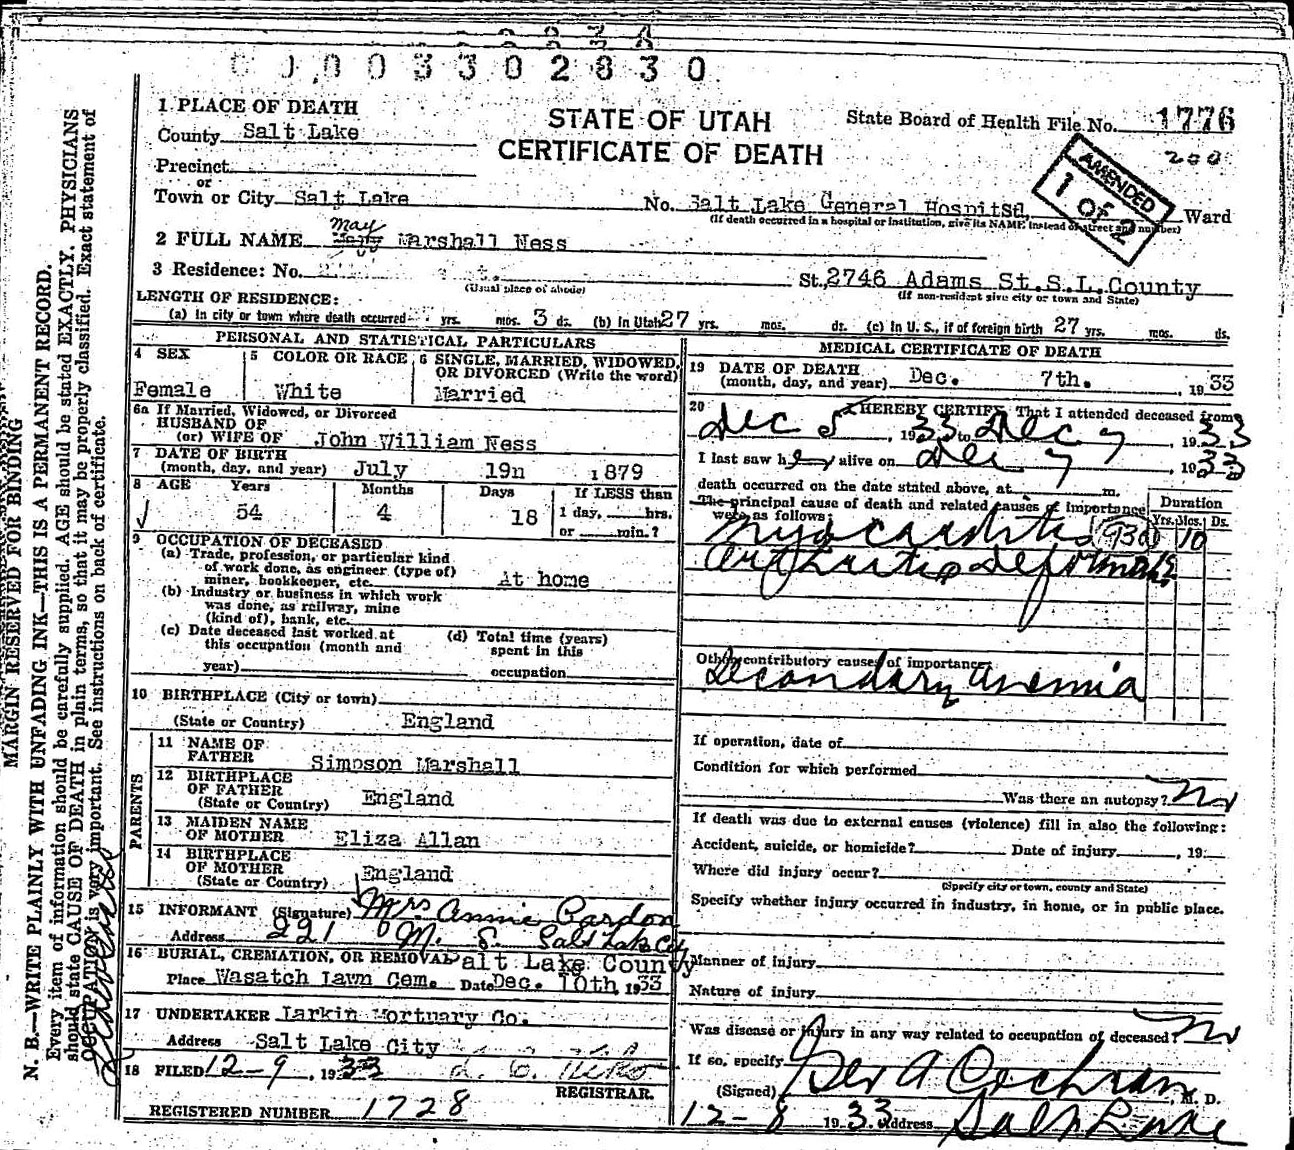 C 0 0 0 3 3 0 2 8 3 0
STATE OF UTAH
CERTIFICATE OF DEATH
State Board of Health File No. 1776
200
AMENDED
1 OF 2
1 PLACE OF DEATH
County Salt Lake
Precinct
or
Town or City Salt Lake No. Salt Lake General Hospital, Ward
(If death occurred in a hospital or institution, give its NAME instead of street and number)
May
2 FULL NAME Mary Marshall Ness
3 Residence: No. St. 2746 Adams St. S.L. County
(Usual place of abode) (If non-resident give city or town and State)
LENGTH OF RESIDENCE:
(a) In city or town where death occurred yrs. mos. 3 ds. (b) In Utah 27 yrs. mos. ds. (c) In U. S., if of foreign birth 27 yrs. mos. ds.
PERSONAL AND STATISTICAL PARTICULARS
4 SEX Female
5 COLOR OR RACE White
6 SINGLE, MARRIED, WIDOWED, OR DIVORCED (Write the word) Married
6a If Married, Widowed, or Divorced
HUSBAND OF
(or) WIFE OF John William Ness
7 DATE OF BIRTH
(month, day, and year) July 19n 1879
8 AGE Years Months Days If LESS than
54 4 18 1 day, hrs.
or min.?
9 OCCUPATION OF DECEASED
(a) Trade, profession, or particular kind
of work done, as engineer (type of)
miner, bookkeeper, etc. At home
(b) Industry or business in which work
was done, as railway, mine
(kind of), bank, etc.
(c) Date deceased last worked at
this occupation (month and
year)
(d) Total time (years)
spent in this
occupation
10 BIRTHPLACE (City or town)
(State or Country) England
PARENTS
11 NAME OF
FATHER Simpson Marshall
12 BIRTHPLACE
OF FATHER
(State or Country) England
13 MAIDEN NAME
OF MOTHER Eliza Allan
14 BIRTHPLACE
OF MOTHER
(State or Country) England
15 INFORMANT (Signature) Mrs Annie Pardon
Address 221 M. S. Salt Lake City
16 BURIAL, CREMATION, OR REMOVAL Salt Lake County
Place Wasatch Lawn Cem. Date Dec. 10th, 1933
17 UNDERTAKER Larkin Mortuary Co.
Address Salt Lake City
18 FILED 12-9, 1933
REGISTRAR.
REGISTERED NUMBER 1728
MEDICAL CERTIFICATE OF DEATH
19 DATE OF DEATH
(month, day, and year) Dec. 7th. 1933
20 I HEREBY CERTIFY, That I attended deceased from
Dec 5, 1933 to Dec 7, 1933
I last saw her alive on Dec 7, 1933
death occurred on the date stated above, at m.
The principal cause of death and related causes of importance
were as follows:
Duration
Yrs. Mos. Ds.
Myocarditis (93d) 10
Arthritis deformans
Other contributory causes of importance:
Secondary Anemia
If operation, date of
Condition for which performed
Was there an autopsy? No
If death was due to external causes (violence) fill in also the following:
Accident, suicide, or homicide? Date of injury, 19
Where did injury occur?
(Specify city or town, county and State)
Specify whether injury occurred in industry, in home, or in public place.
Manner of injury
Nature of injury
Was disease or injury in any way related to occupation of deceased? No
If so, specify
(Signed) Geo A Cochran, M. D.
12-8 1933. Address Salt Lake
MARGIN RESERVED FOR BINDING
N. B.—WRITE PLAINLY WITH UNFADING INK—THIS IS A PERMANENT RECORD.
Every item of information should be carefully supplied. AGE should be stated EXACTLY. PHYSICIANS
should state CAUSE OF DEATH in plain terms, so that it may be properly classified. Exact statement of
OCCUPATION is very important. See instructions on back of certificate.